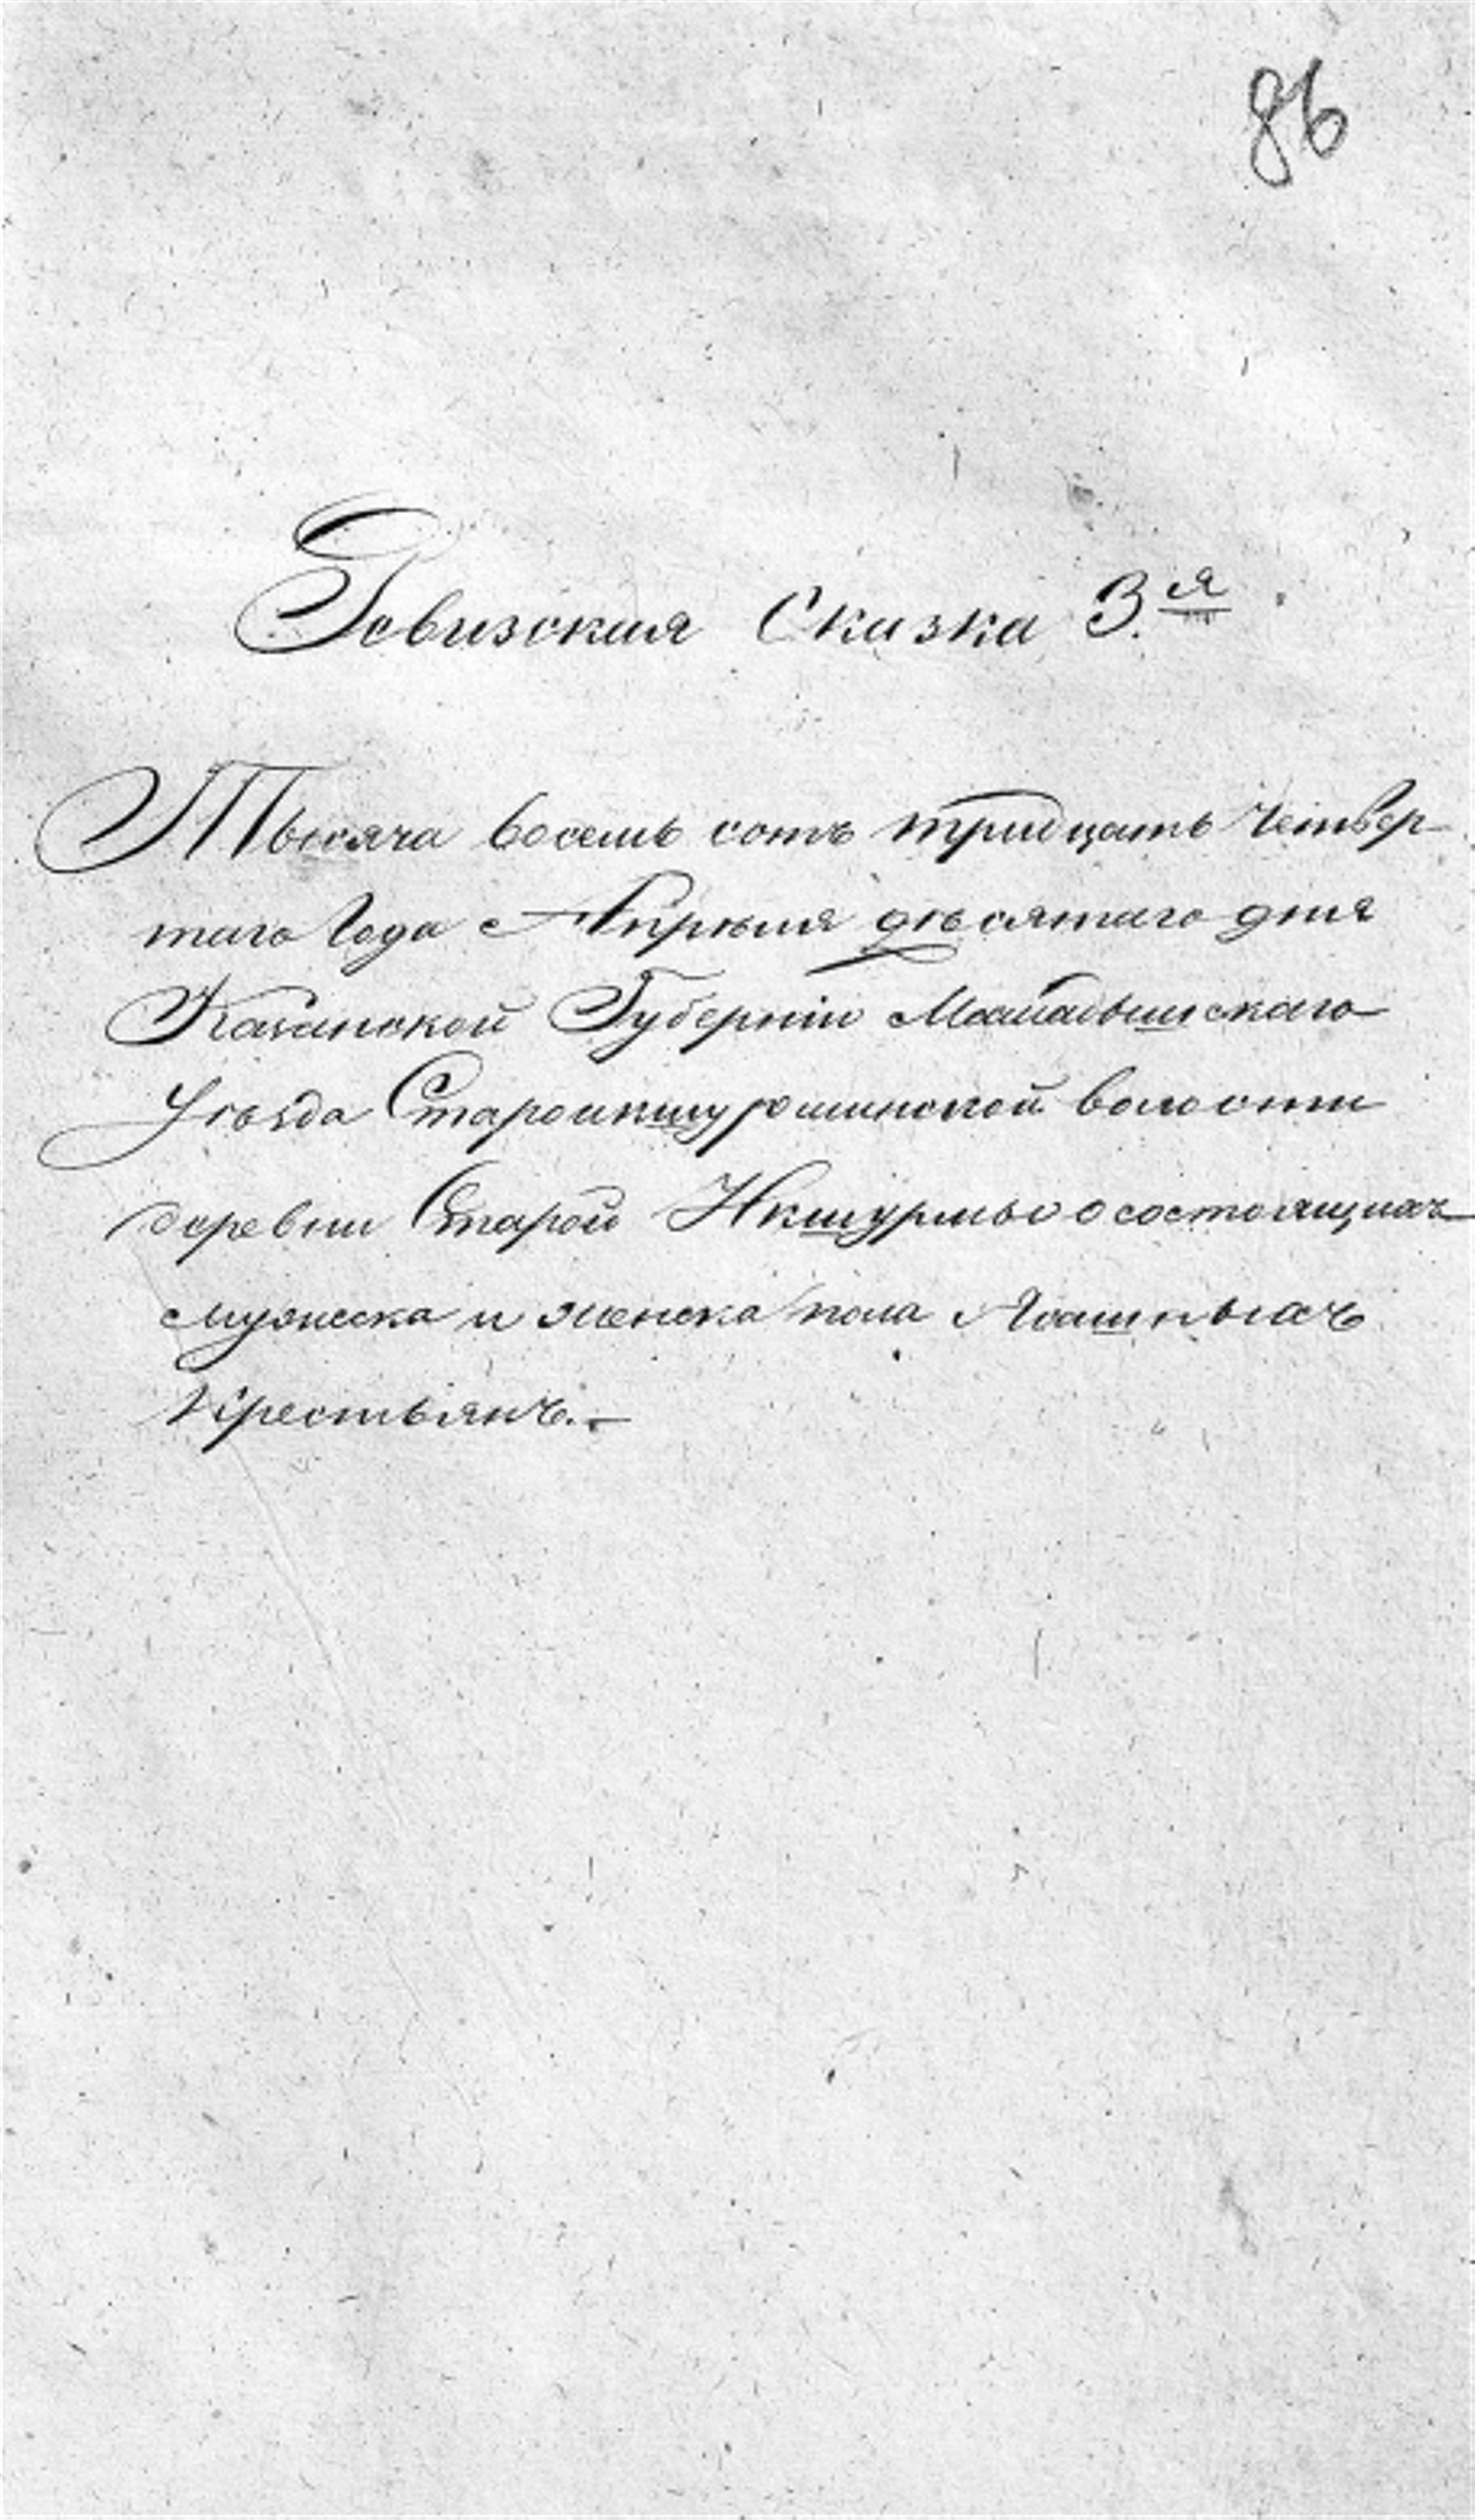 86
Ревизская Сказка 3.я
Тысяча восемь сотъ тридцать четвер
таго Года Апрѣля дѣсятаго дня
Казанской Губерніи Мамадышскаго
Уѣзда Староикшурминской волости
деревни Старой Икшурмы о состоящихъ
мужеска и женска пола Ясашныхъ
Крестьянъ.